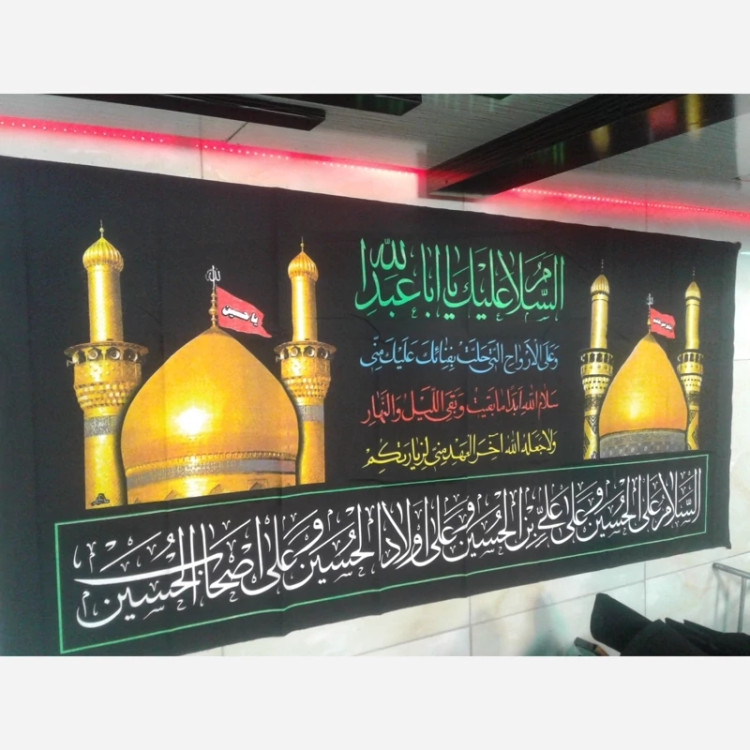 السلام عليك يا اباعبدالله
وعلى الارواح التي حلت بفنائك عليك مني
سلام الله ابدا ما بقيت وبقي الليل والنهار
ولا جعله الله آخر العهد مني لزيارتكم
السلام على الحسين وعلى علي بن الحسين وعلى اولاد الحسين وعلى اصحاب الحسين
یا حسین